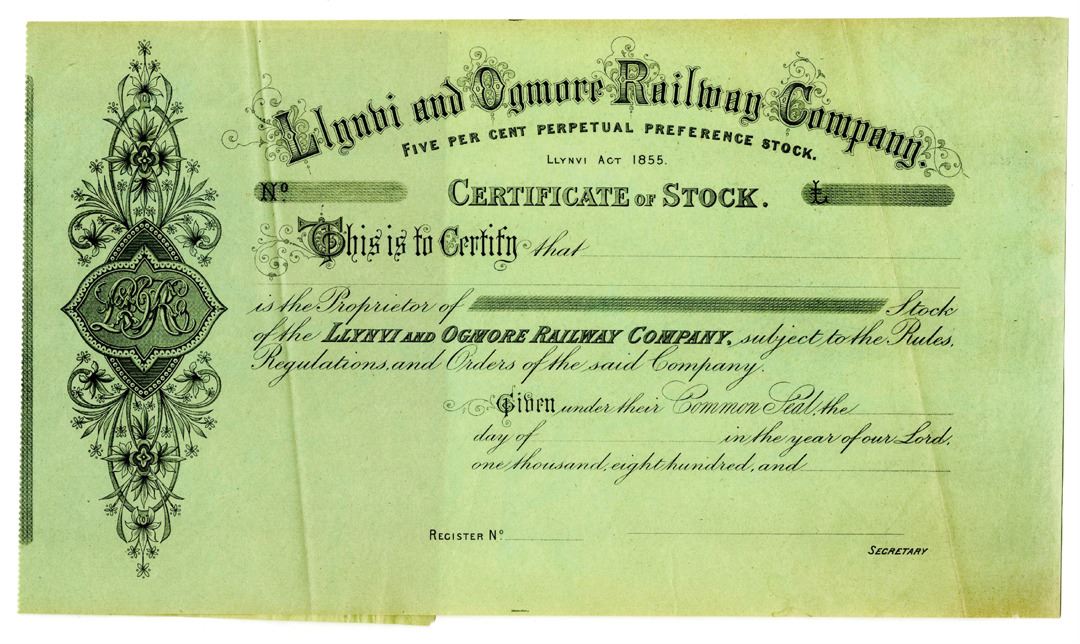 Llynvi and Ogmore Railway Company.
FIVE PER CENT PERPETUAL PREFERENCE STOCK.
LLYNVI ACT 1855.
Nº CERTIFICATE OF STOCK. £
This is to Certify that
is the Proprietor of Stock
of the LLYNVI AND OGMORE RAILWAY COMPANY, subject to the Rules,
Regulations, and Orders of the said Company.
Given under their Common Seal, the
day of in the year of our Lord,
one thousand, eight hundred, and
REGISTER Nº
SECRETARY